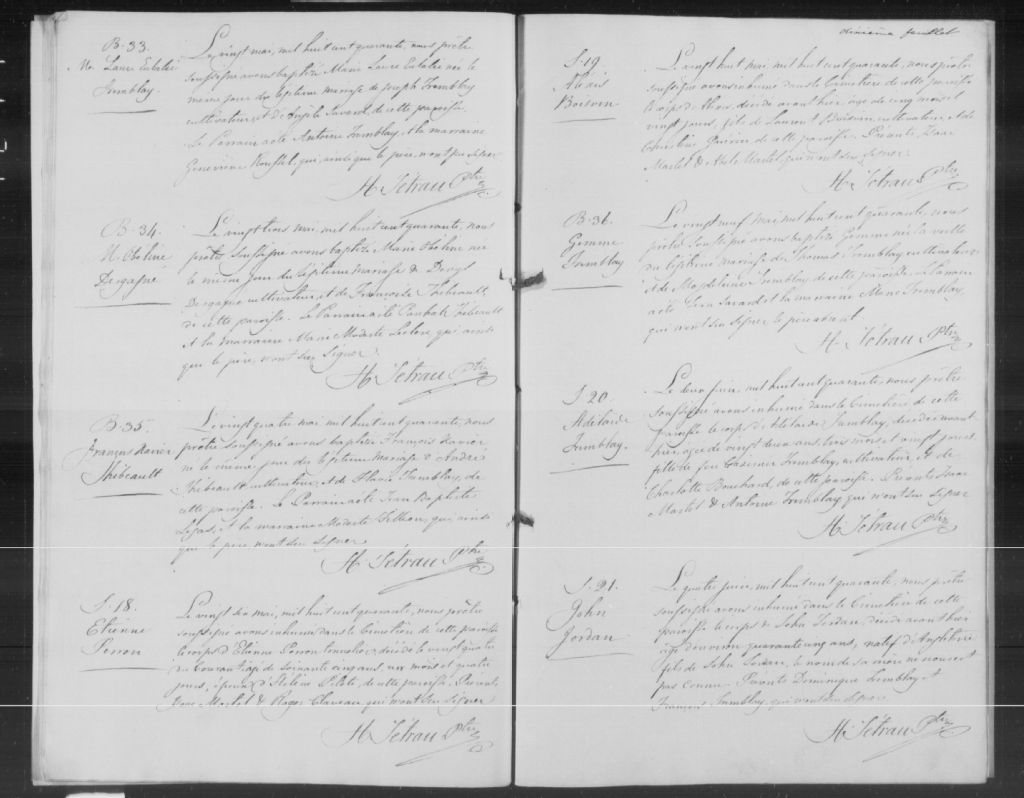 B. 33.
M. Laure Eulalie
Tremblay
Le vingt mai, mil huit cent quarante, nous prêtre
soussigné avons baptisé Marie Laure Eulalie née le
même jour du septième mariage de Joseph Tremblay
cultivateur, et d'Angèle Savard, de cette paroisse.
Le Parrain a été Antoine Tremblay, et la marraine
Geneviève qui, ainsi que le père, n'ont pu signer
H. Tétrau Ptre
B. 34.
M. Obéline
Desgagné
Le vingt trois mai, mil huit cent quarante, nous
prêtre soussigné avons baptisé Marie Obéline née
le même jour du septième mariage de Denys
Desgagné cultivateur, et de Françoise Thibeault,
de cette paroisse. Le Parrain a été Thibeault
et la marraine Marie Modeste Leclerc qui ainsi
que le père, n'ont su signer.
H. Tétrau Ptre
B. 35.
François Xavier
Thibeault
Le vingt quatre mai, mil huit cent quarante, nous
prêtre soussigné avons baptisé François Xavier
né le même jour du septième mariage d'André
Thibeault cultivateur, et de Tremblay, de
cette paroisse. Le Parrain a été Jean Baptiste
et la marraine Modeste qui ainsi
que le père n'ont su signer
H. Tétrau Ptre
S. 18.
Etienne
Perron
Le vingt six mai, mil huit cent quarante, nous prêtre
soussigné avons inhumé dans le Cimetière de cette paroisse
le corps d'Etienne Perron décédé le vingt quatre
du courant âgé de soixante cinq ans, six mois et quatre
jours, époux d'Hélène Pilote, de cette paroisse. Présents
Isaac Martel & Roger Claveau qui n'ont su signer
H. Tétrau Ptre
dixième feuillet
S. 19.
Alexis
Boivin
Le vingt huit mai, mil huit cent quarante, nous prêtre
soussigné avons inhumé dans le Cimetière de cette paroisse
le corps d'Alexis, décédé avant hier, âgé de cinq mois et
vingt jours, fils de Laurent Boivin, cultivateur, et de
de cette paroisse. Présents, Isaac
Martel & Abel Martel qui n'ont su signer
H. Tétrau Ptre
B. 36.
Gemme
Tremblay
Le vingt neuf mai, mil huit cent quarante, nous
prêtre soussigné avons baptisé Gemme née la veille
du septième mariage de Thomas Tremblay cultivateur
et de Magdeleine Tremblay de cette paroisse. Le Parrain
a été Savard et la marraine Marie Tremblay
qui n'ont su signer le père absent.
H. Tétrau Ptre
S. 20.
Adelaide
Tremblay.
Le deux juin, mil huit cent quarante, nous prêtre
soussigné avons inhumé dans le Cimetière de cette
paroisse le corps d'Adelaide Tremblay, décédée avant
hier, âgée de vingt deux ans, trois mois et vingt jours,
fille de feu Casimir Tremblay, cultivateur, et de
Charlotte Bouchard, de cette paroisse. Présents Isaac
Martel & Antoine Tremblay qui n'ont su signer
H. Tétrau Ptre
S. 21.
John
Jordan
Le quatre juin, mil huit cent quarante, nous prêtre
soussigné avons inhumé dans le Cimetière de cette
paroisse le corps de John Jordan, décédé avant hier
âgé d'environ quarante cinq ans, natif d'Angleterre
fils de John Jordan, le nom de sa mère ne nous est
pas connu. Présents Dominique Tremblay, et
François Tremblay, qui n'ont su signer
H. Tétrau Ptre